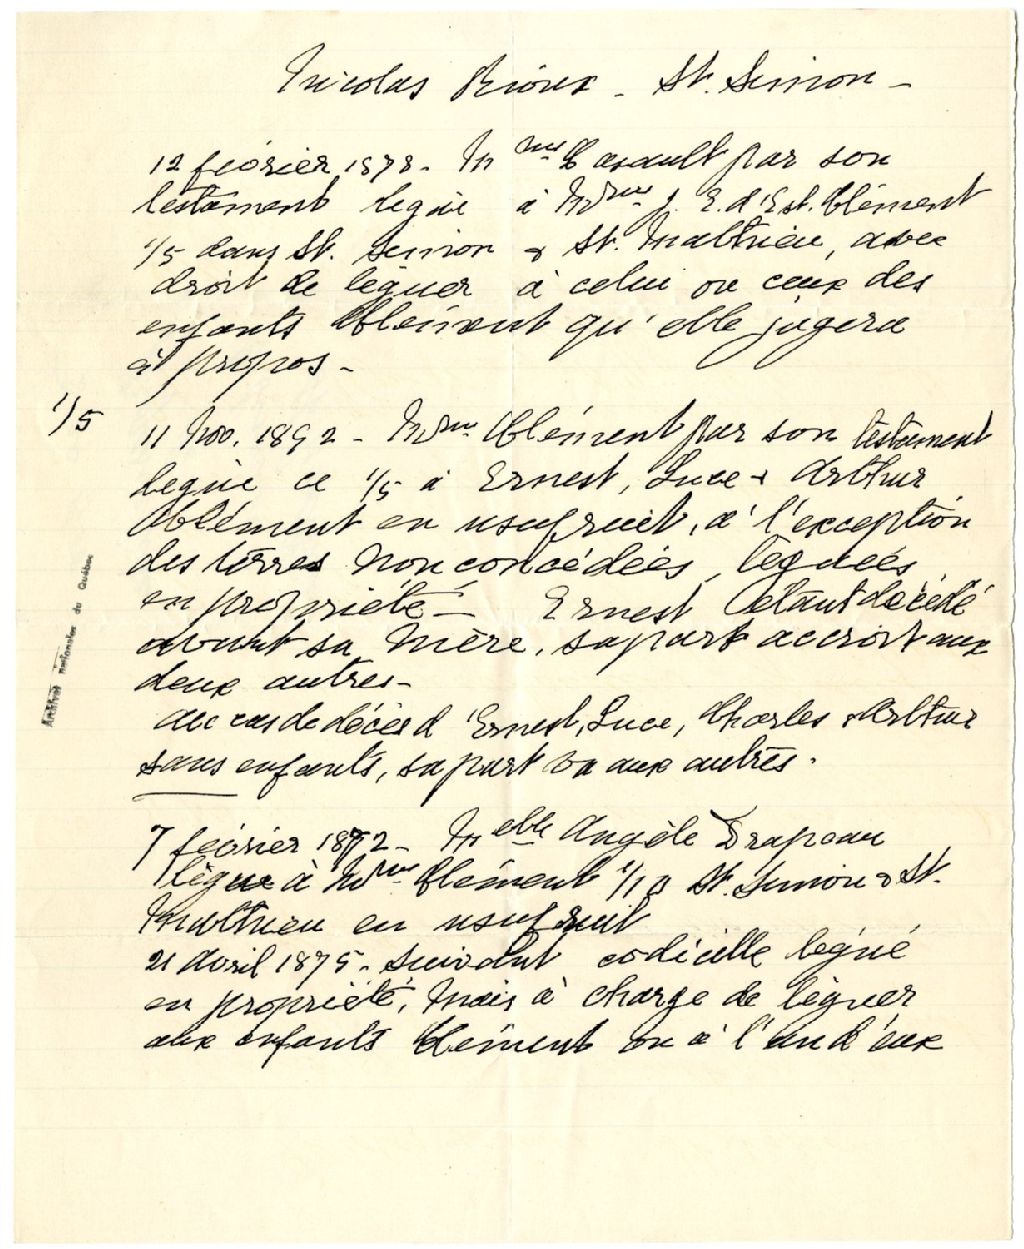 Nicolas Rioux - St. Simon -
12 février 1878. Mme Casault par son
testament legue à Mme J. E. d'Est. Clément
1/5 dans St. Simon & St. Mathieu, avec
droit de léguer à celui ou ceux des
enfants Clément qu'elle jugera
à propos -
1/5
11 Nov. 1892 - Mme Clément par son testament
legue ce 1/5 à Ernest, Luce & Arthur
Clément en usufruit, à l'exception
des terres non concédées, léguées
en propriété - Ernest étant décédé
avant sa mère, sa part accroit aux
deux autres -
Au cas de décès d'Ernest, Luce, Charles & Arthur
sans enfants, sa part va aux autres.
7 février 1872 - Melle Angèle Drapeau
lègue à Mme Clément 1/10 St. Simon & St.
Mathieu en usufruit
21 Avril 1875 - Suivant codicille legué
en propriété, mais à charge de léguer
aux enfants Clément ou à l'un d'eux
Archives nationales du Québec